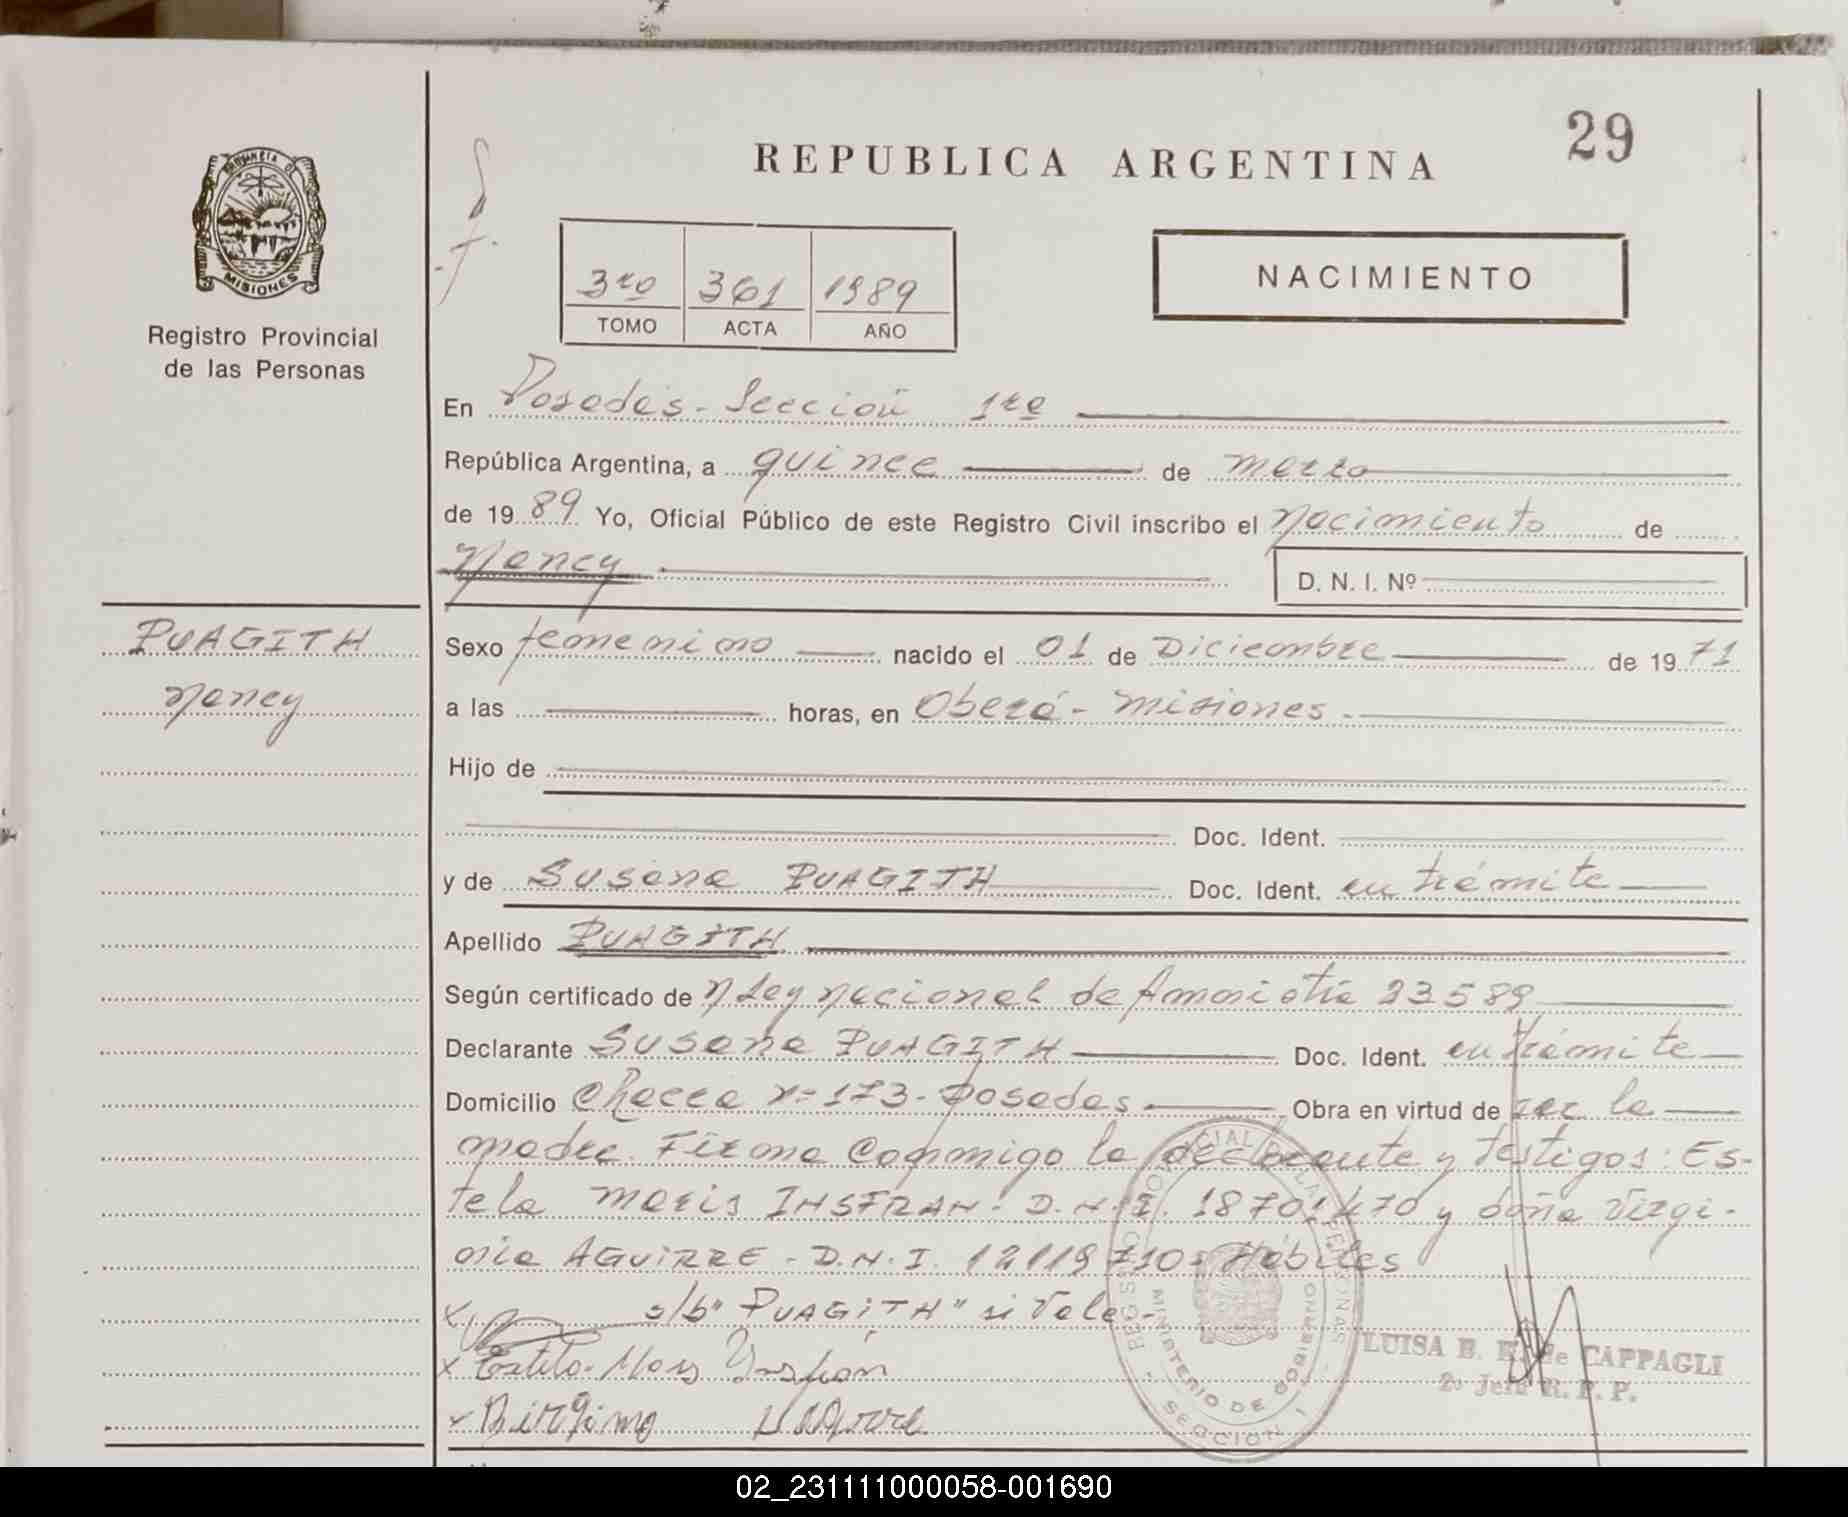 29
REPUBLICA ARGENTINA
PROVINCIA D
MISIONES
Registro Provincial
de las Personas
3ro 361 1989
TOMO ACTA AÑO
NACIMIENTO
En Posadas - Sección 1ra
República Argentina, a quince de marzo
de 1989 Yo, Oficial Público de este Registro Civil inscribo el Nacimiento de
Nancy D. N. I. Nº
PUAGITH
Nancy
Sexo femenino nacido el 01 de Diciembre de 1971
a las horas, en Oberá - Misiones -
Hijo de
Doc. Ident.
y de Susana PUAGITH Doc. Ident. en trámite
Apellido PUAGITH
Según certificado de N Ley Nacional de Amnistía 23589
Declarante Susana PUAGITH Doc. Ident. en trámite
Domicilio Chacra nº 173 - Posadas Obra en virtud de ser la
madre. Firma conmigo la declarante y testigos: Es-
tela Maris INSFRAN - D.N.I. 18701470 y doña Virgi-
nia AGUIRRE - D.N.I. 12119710 - Hábiles
x s/b "PUAGITH" si vale -
x Estela Maris Insfrán
x Birgina Aguirre
REGISTRO PROVINCIAL DE LAS PERSONAS
MINISTERIO DE GOBIERNO
SECCION 1
LUISA E. de CAPPAGLI
2º Jefe R. P. P.
02_231111000058-001690